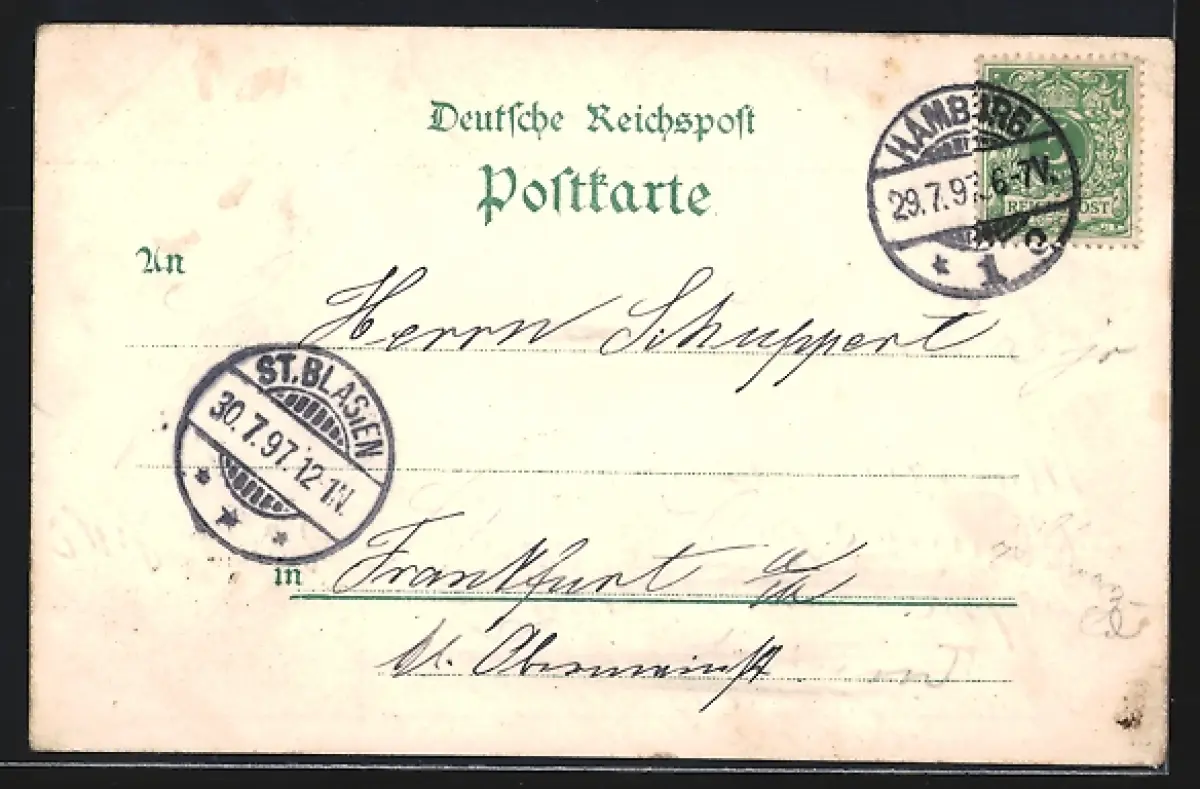 Deutsche Reichspost
Postkarte
HAMBURG
29.7.97. 6-7V.
* 1 c.
5
REICHSPOST
An
Herrn Schuppert
ST. BLASIEN
30.7.97. 12-1N.
in Frankfurt a/M
kl. Obermainst